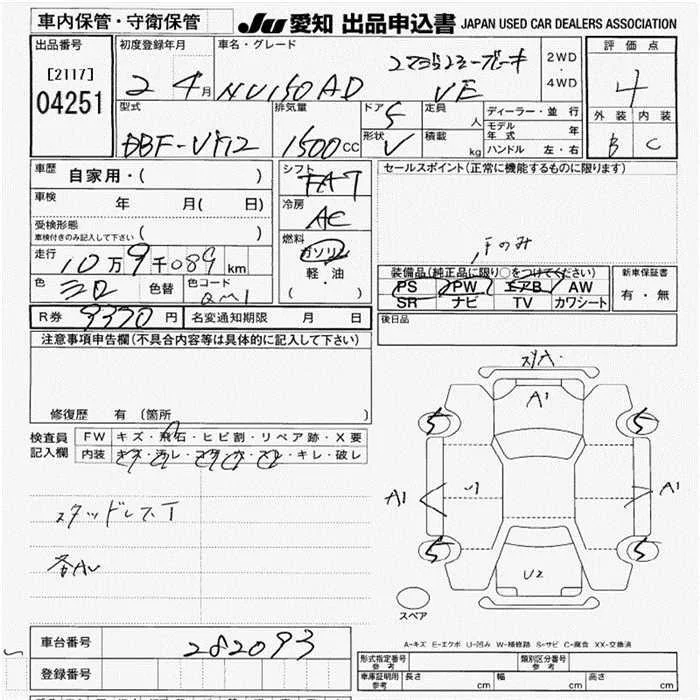 車内保管・守衛保管 JU 愛知 出品申込書 JAPAN USED CAR DEALERS ASSOCIATION
出品番号 初度登録年月 車名・グレード 2WD 評価点
[2117] 2 年 4 月 NV150 AD VE 4WD 4
04251 型式 排気量 ドア 5 定員 人 ディーラー・並行 外装 内装
DBF-VY12 1500 cc 形状 V 積載 kg モデル年式 年 B C
ハンドル 左・右
車歴 自家用・( ) シフト FA7 セールスポイント(正常に機能するものに限ります)
車検 年 月( 日) 冷房 AC
受検形態 車検付きのみ記入して下さい 燃料 ガソリン
走行 10万9千089km 軽・油 装備品(純正品に限り○をつけてください) 新車保証書
色 色替 色コード QM1 ( ) PS PW エアB AW 有・無
SR ナビ TV カワシート
R券 9370円 名変通知期限 月 日 後日品
注意事項申告欄(不具合内容等は具体的に記入して下さい)
修復歴 有(箇所 )
検査員記入欄 FW キズ・飛石・ヒビ割・リペア跡・X要
内装 キズ・汚レ・コゲ・穴・スレ・キレ・破レ
A1
5 5
A1 A1
5 5
U2
スタッドレスT
各AU
スペア
A-キズ E-エクボ U-凹み W-補修跡 S-サビ C-腐食 XX-交換済
車台番号 282093
登録番号
形式指定番号 参考 類別区分番号 参考
車庫証明用 参考 長さ cm 幅 cm 高さ cm